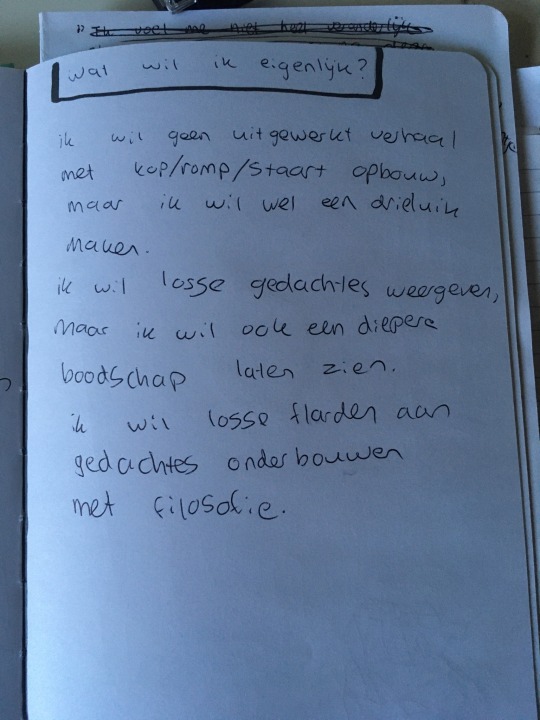 "Ik voel me niet heel veranderlijks
wat wil ik eigenlijk?
ik wil geen uitgewerkt verhaal
met kop/romp/staart opbouw,
maar ik wil wel een drieluik
maken.
ik wil losse gedachtes weergeven,
maar ik wil ook een diepere
boodschap laten zien.
ik wil losse flarden aan
gedachtes onderbouwen
met filosofie.